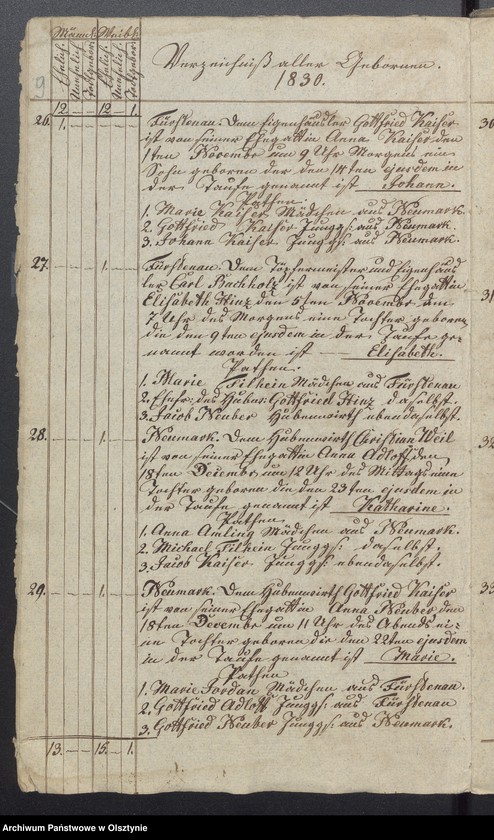 Männl. Weibl.
Ehelich. Unehelich. Todtgebor. Ehelich. Unehelich. Todtgebor.
Verzeichniß aller Gebornen.
1830.
9
12. — — 12 — 1.
26. 1. — — — — —
Fürstenau. Dem Eigenkäthler Gottfried Kaiser
ist von seiner Ehegattin Anna Kaiser den
11ten November um 9 Uhr Morgens ein
Sohn geboren der den 14ten ejusdem in
der Taufe genannt ist Johann.
Pathen:
1. Marie Kaiser Mädchen aus Neumark.
2. Gottfried Kaiser Junggs: aus Neumark.
3. Johann Kaiser Junggs: aus Neumark.
27. — — — 1. — —
Fürstenau. Dem Töpfermeister und
Carl Buchholz ist von seiner Ehegattin
Elisabeth Hinz den 5ten November um
7 Uhr des Morgens eine Tochter geboren
die den 9ten ejusdem in der Taufe ge-
nannt worden ist — Elisabeth.
Pathen.
1. Marie Filhein Mädchen aus Fürstenau
2. Ehefr: des Hübners: Gottfried Hinz daselbst.
3. Jacob Neuber Hubenwirth ebendaselbst.
28. — — — 1. — —
Neumark. Dem Hubenwirth Christian Weil
ist von seiner Ehegattin Anna Adloff den
18ten December um 12 Uhr des Mittags eine
Tochter geboren die den 23ten ejusdem in
der Taufe genannt ist Katharine.
Pathen.
1. Anna Amling Mädchen aus Neumark.
2. Michael Filhein Junggs: daselbst.
3. Jacob Kaiser Junggs: ebendaselbst.
29. — — — 1. — —
Neumark. Dem Hubenwirth Gottfried Kaiser
ist von seiner Ehegattin Anna Neuber den
18ten December um 11 Uhr des Abends ei-
ne Tochter geboren die den 22ten ejusdem
in der Taufe genannt ist Marie.
Pathen
1. Marie Jordan Mädchen aus Fürstenau.
2. Gottfried Adloff Junggs: aus Fürstenau
3. Gottfried Neuber Junggs: aus Neumark.
13. — — 15. — 1.
30
31
32
33
Archiwum Państwowe w Olsztynie